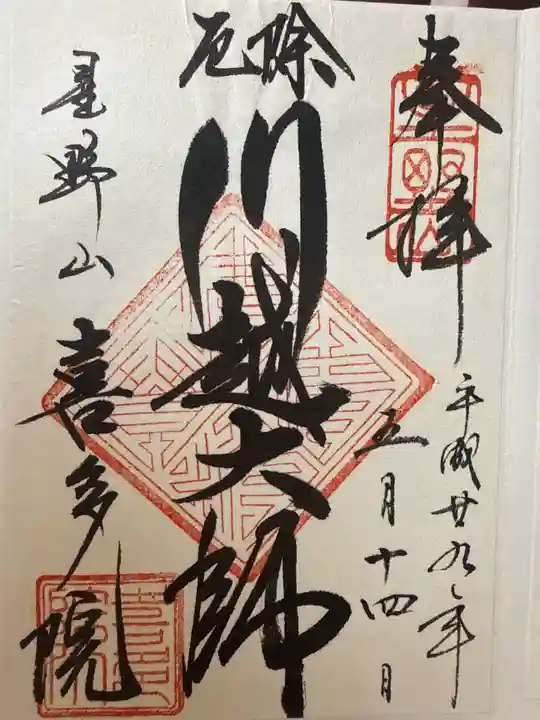 奉拝
平成廿九年
五月十四日
厄除
川越大師
星野山
喜多院